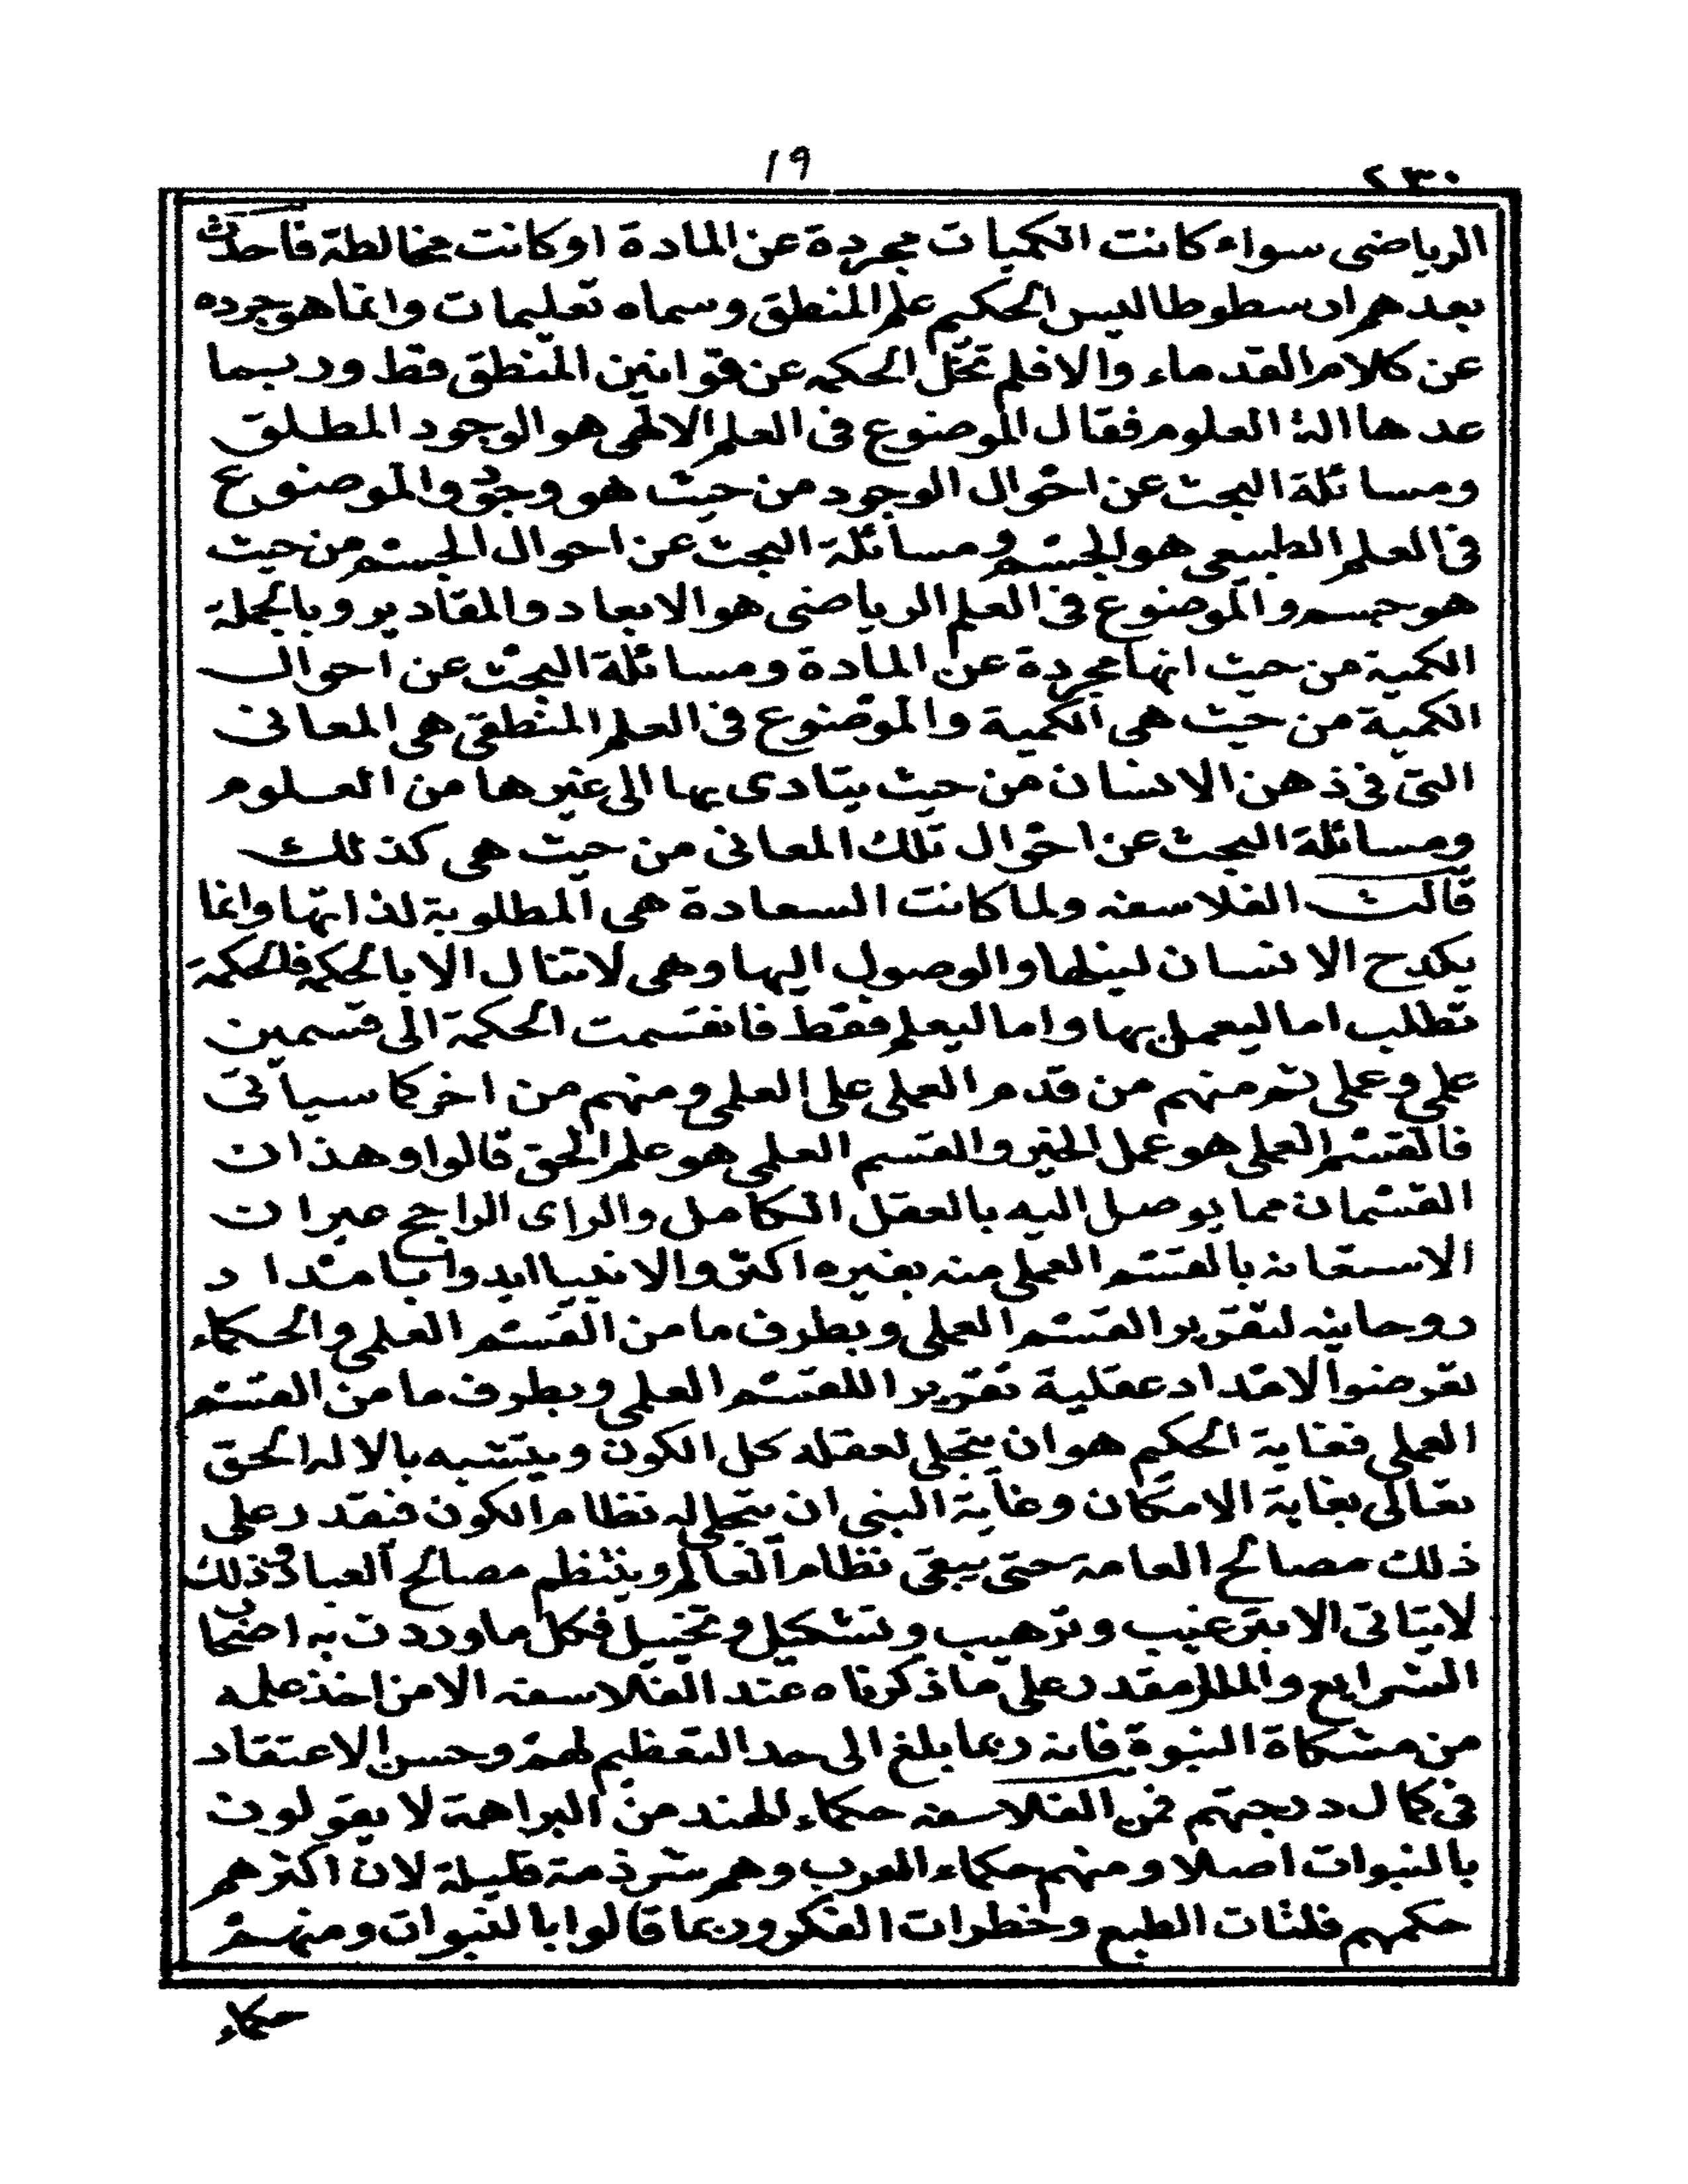 ١٩
٢٣٠
الرياضى سواء كانت الكميات مجردة عن المادة او كانت مخالطة فاحدث
بعدهم ارسطوطاليس الحكيم علم المنطق وسماه تعليمات وانما هو جرده
عن كلام القدماء والا فلم تخل الحكمه عن قوانين المنطق قط وربما
عدها الة العلوم فقال الموضوع فى العلم الالهى هو الوجود المطلق
ومسائلة البحث عن احوال الوجود من حيث هو وجود والموضوع
فى العلم الطبيعى هو الجسم ومسائلة البحث عن احوال الجسم من حيث
هو جسم والموضوع فى العلم الرياضى هو الابعاد والمقادير وبالجملة
الكمية من حيث انها مجردة عن المادة ومسائلة البحث عن احوال
الكمية من حيث هى الكمية والموضوع فى العلم المنطقى هى المعانى
التى فى ذهن الانسان من حيث يتادى بها الى غيرها من العلوم
ومسائلة البحث عن احوال تلك المعانى من حيث هى كذلك
قالت الفلاسفه ولما كانت السعادة هى المطلوبة لذاتها وانما
يكدح الانسان لينلها والوصول اليها وهى لا تنال الا بالحكمه فالحكمة
تطلب اما ليعمل بها واما ليعلم فقط فانقسمت الحكمة الى قسمين
علمى وعملى ثم منهم من قدم العملى على العلمى ومنهم من اخر كما سياتى
فالقسم العملى هو عمل الخير والقسم العلمى هو علم الحق قالوا وهذان
القسمان مما يوصل اليه بالعقل الكامل والراى الراجح غيران
الاستعانه بالقسم العملى منه بغيره اكثر والانبيا ايدوا بامداد
روحانيه لتقرير القسم العملى وبطرف ما من القسم العلمى والحكماء
تعرضوا لامداد عقلية تقريرا للقسم العلمى وبطرف ما من القسم
العملى فغاية الحكيم هو ان يتجلى لعقله كل الكون ويتشبه بالاله الحق
تعالى بغاية الامكان وغاية النبى ان يتجلى له نظام الكون فيقدر على
ذلك مصالح العامه حتى يبقى نظام العالم وينتظم مصالح العباد وذلك
لا يتاتى الا بترغيب وترهيب وتشكيل وتخييل فكل ما وردت به اصحاب
الشرايع والملل مقدر على ما ذكرناه عند الفلاسفه الا من اخذ علمه
من مشكاة النبوة فانه ربما بلغ الى حد التعظيم لهم وحسن الاعتقاد
فى كمال درجتهم فمن الفلاسفه حكماء الهند من البراهمة لا يقولون
بالنبوات اصلا ومنهم حكماء العرب وهم شرذمة قليلة لان اكثرهم
حكمهم فلتات الطبع وخطرات الفكر وربما قالوا بالنبوات ومنهم
حكماء